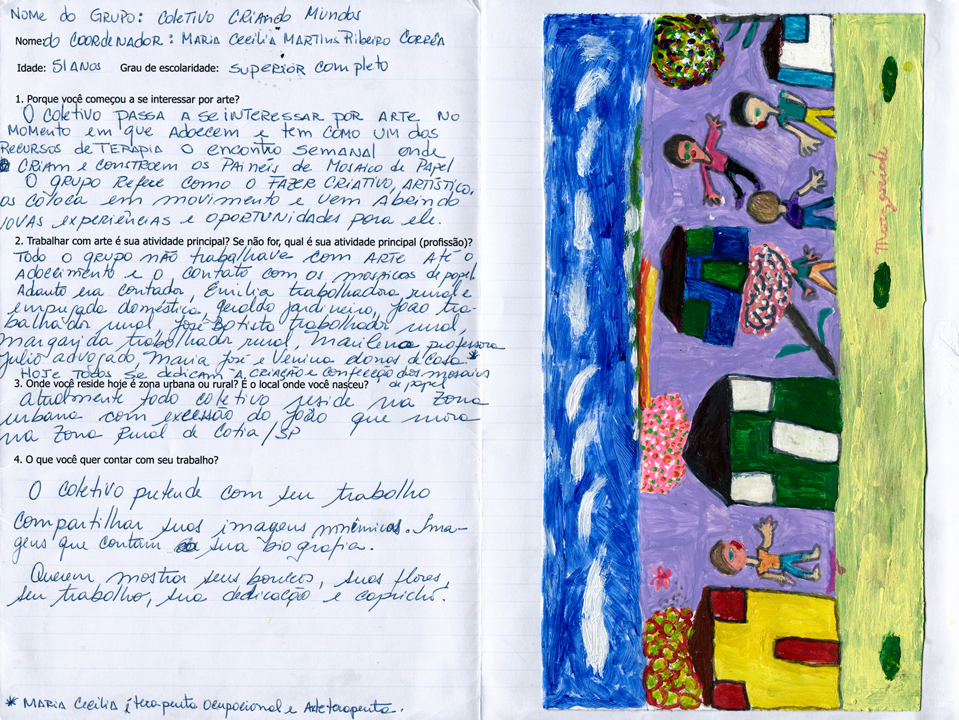 Nome do Grupo: Coletivo Criando Mundos
Nome do Coordenador: Maria Cecilia Martins Ribeiro Corrêa
Idade: 51 anos Grau de escolaridade: Superior completo
1. Porque você começou a se interessar por arte?
O coletivo passa a se interessar por arte no
momento em que adoecem e tem como um dos
recursos de terapia o encontro semanal onde
criam e constroem os painéis de mosaico de papel
O grupo refere como o fazer criativo, artístico,
os coloca em movimento e vem abrindo
novas experiências e oportunidades para ele.
2. Trabalhar com arte é sua atividade principal? Se não for, qual é sua atividade principal (profissão)?
Todo o grupo não trabalhava com arte até o
adoecimento e o contato com os mosaicos de papel
Adauto era contador, Emilia trabalhadora rural e
empregada doméstica, Geraldo jardineiro, João tra-
balhador rural, José Batista trabalhador rural,
Margarida trabalhador rural, Marilena professora
Julio advogado, Maria José e Venina donas de casa. *
Hoje todos se dedicam a criação e confecção dos mosaicos
de papel
3. Onde você reside hoje é zona urbana ou rural? É o local onde você nasceu?
Atualmente todo coletivo reside na zona
urbana com excessão do João que mora
na zona rural de Cotia/SP
4. O que você quer contar com seu trabalho?
O coletivo pretende com seu trabalho
compartilhar suas imagens mnêmicas. Ima-
gens que contam sua biografia.
Querem mostrar seus bonecos, suas flores,
seu trabalho, sua dedicação e capricho.
* Maria Cecilia é terapeuta ocupacional e Arteterapeuta.
Margaride